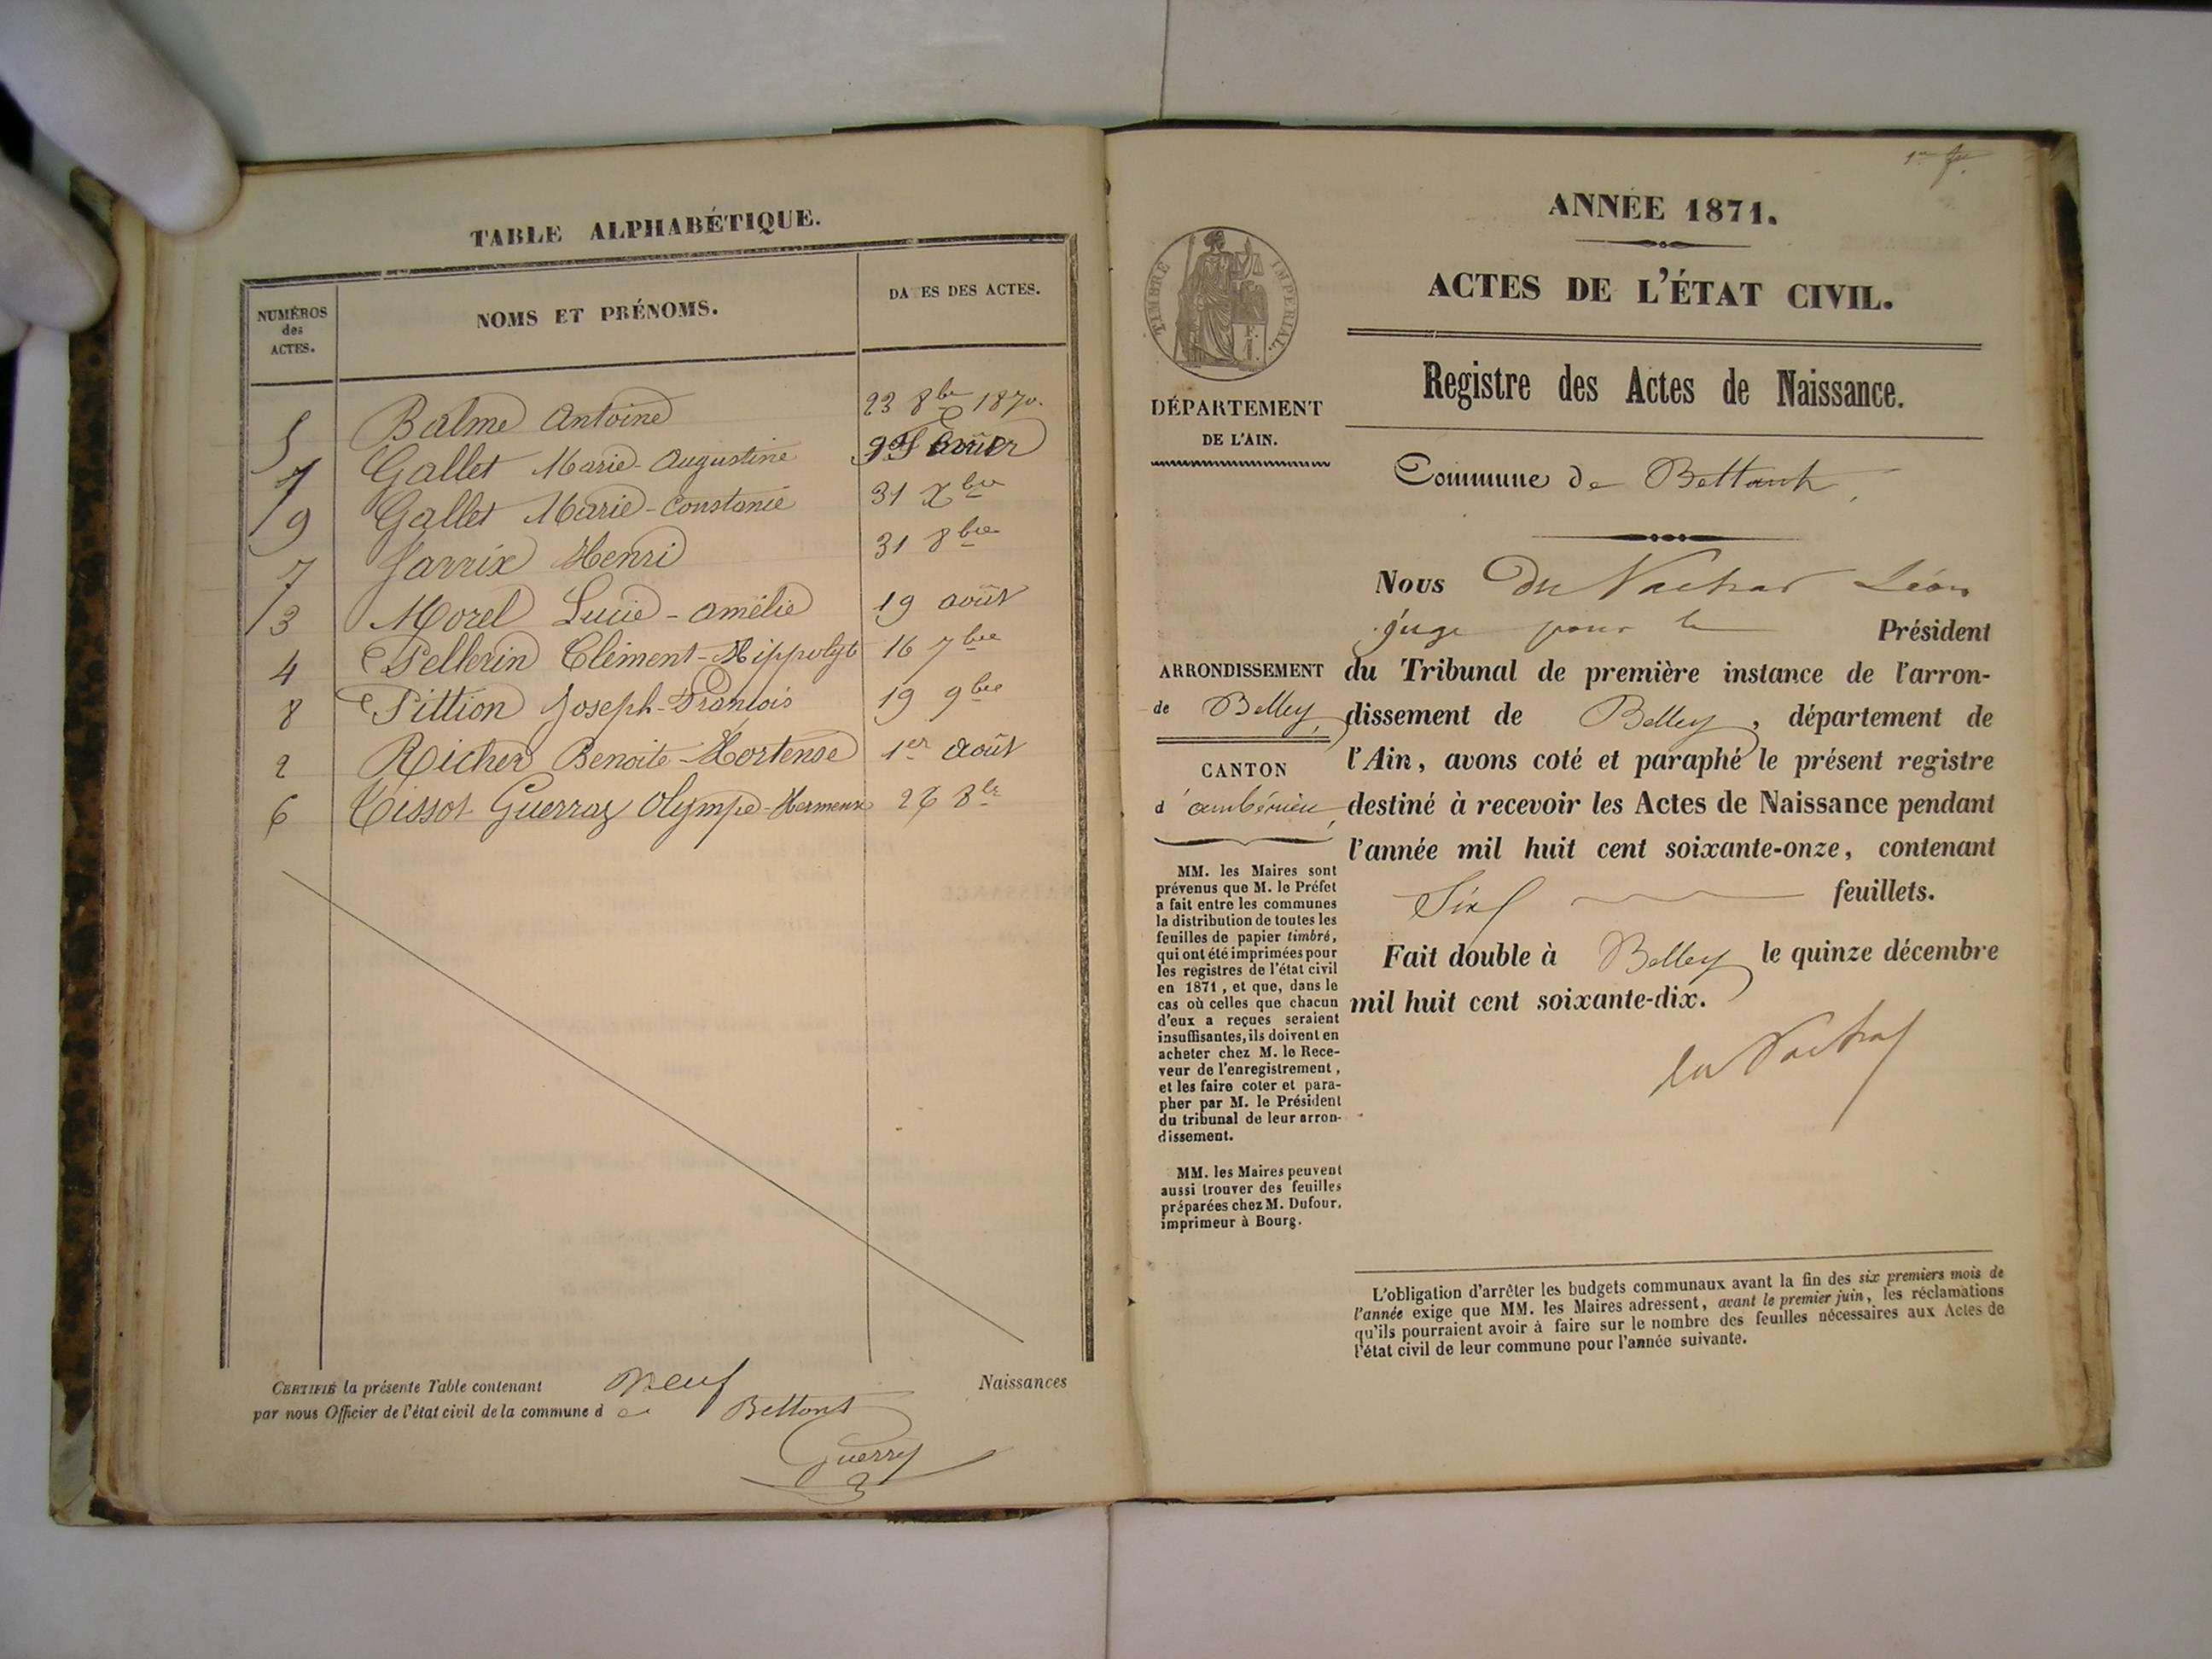 TABLE ALPHABÉTIQUE.
NUMÉROS
des
ACTES.
NOMS ET PRÉNOMS.
DA ES DES ACTES.
5 Balme Antoine 23 8bre 1870.
1 Gallet Marie-Augustine
9 Gallet Marie-Constance 31 Xbre
7 Jarrix Henri 31 8bre
3 Morel Lucie-Amélie 19 août
4 Pellerin Clément-Hippolyte 16 7bre
8 Pittion Joseph-François 19 9bre
2 Richer Benoite-Hortense 1er août
6 Tissot Guerraz Olympe- 26 8bre
CERTIFIÉ la présente Table contenant neuf Naissances
par nous Officier de l'état civil de la commune de Bettant
Guerry
1er f.
ANNÉE 1871.
ACTES DE L'ÉTAT CIVIL.
TIMBRE IMPERIAL.
Registre des Actes de Naissance.
DÉPARTEMENT
DE L'AIN.
Commune de Bettant,
Nous Du Nachat Léon
juge pour le Président
du Tribunal de première instance de l'arron-
dissement de Belley, département de
l'Ain, avons coté et paraphé le présent registre
destiné à recevoir les Actes de Naissance pendant
l'année mil huit cent soixante-onze, contenant
Six feuillets.
Fait double à Belley le quinze décembre
mil huit cent soixante-dix.
ARRONDISSEMENT
de Belley,
CANTON
d'ambérieu,
MM. les Maires sont
prévenus que M. le Préfet
a fait entre les communes
la distribution de toutes les
feuilles de papier timbré,
qui ont été imprimées pour
les registres de l'état civil
en 1871, et que, dans le
cas où celles que chacun
d'eux a reçues seraient
insuffisantes, ils doivent en
acheter chez M. le Rece-
veur de l'enregistrement,
et les faire coter et para-
pher par M. le Président
du tribunal de leur arron-
dissement.
MM. les Maires peuvent
aussi trouver des feuilles
préparées chez M. Dufour,
imprimeur à Bourg.
L'obligation d'arrêter les budgets communaux avant la fin des six premiers mois de
l'année exige que MM. les Maires adressent, avant le premier juin, les réclamations
qu'ils pourraient avoir à faire sur le nombre des feuilles nécessaires aux Actes de
l'état civil de leur commune pour l'année suivante.